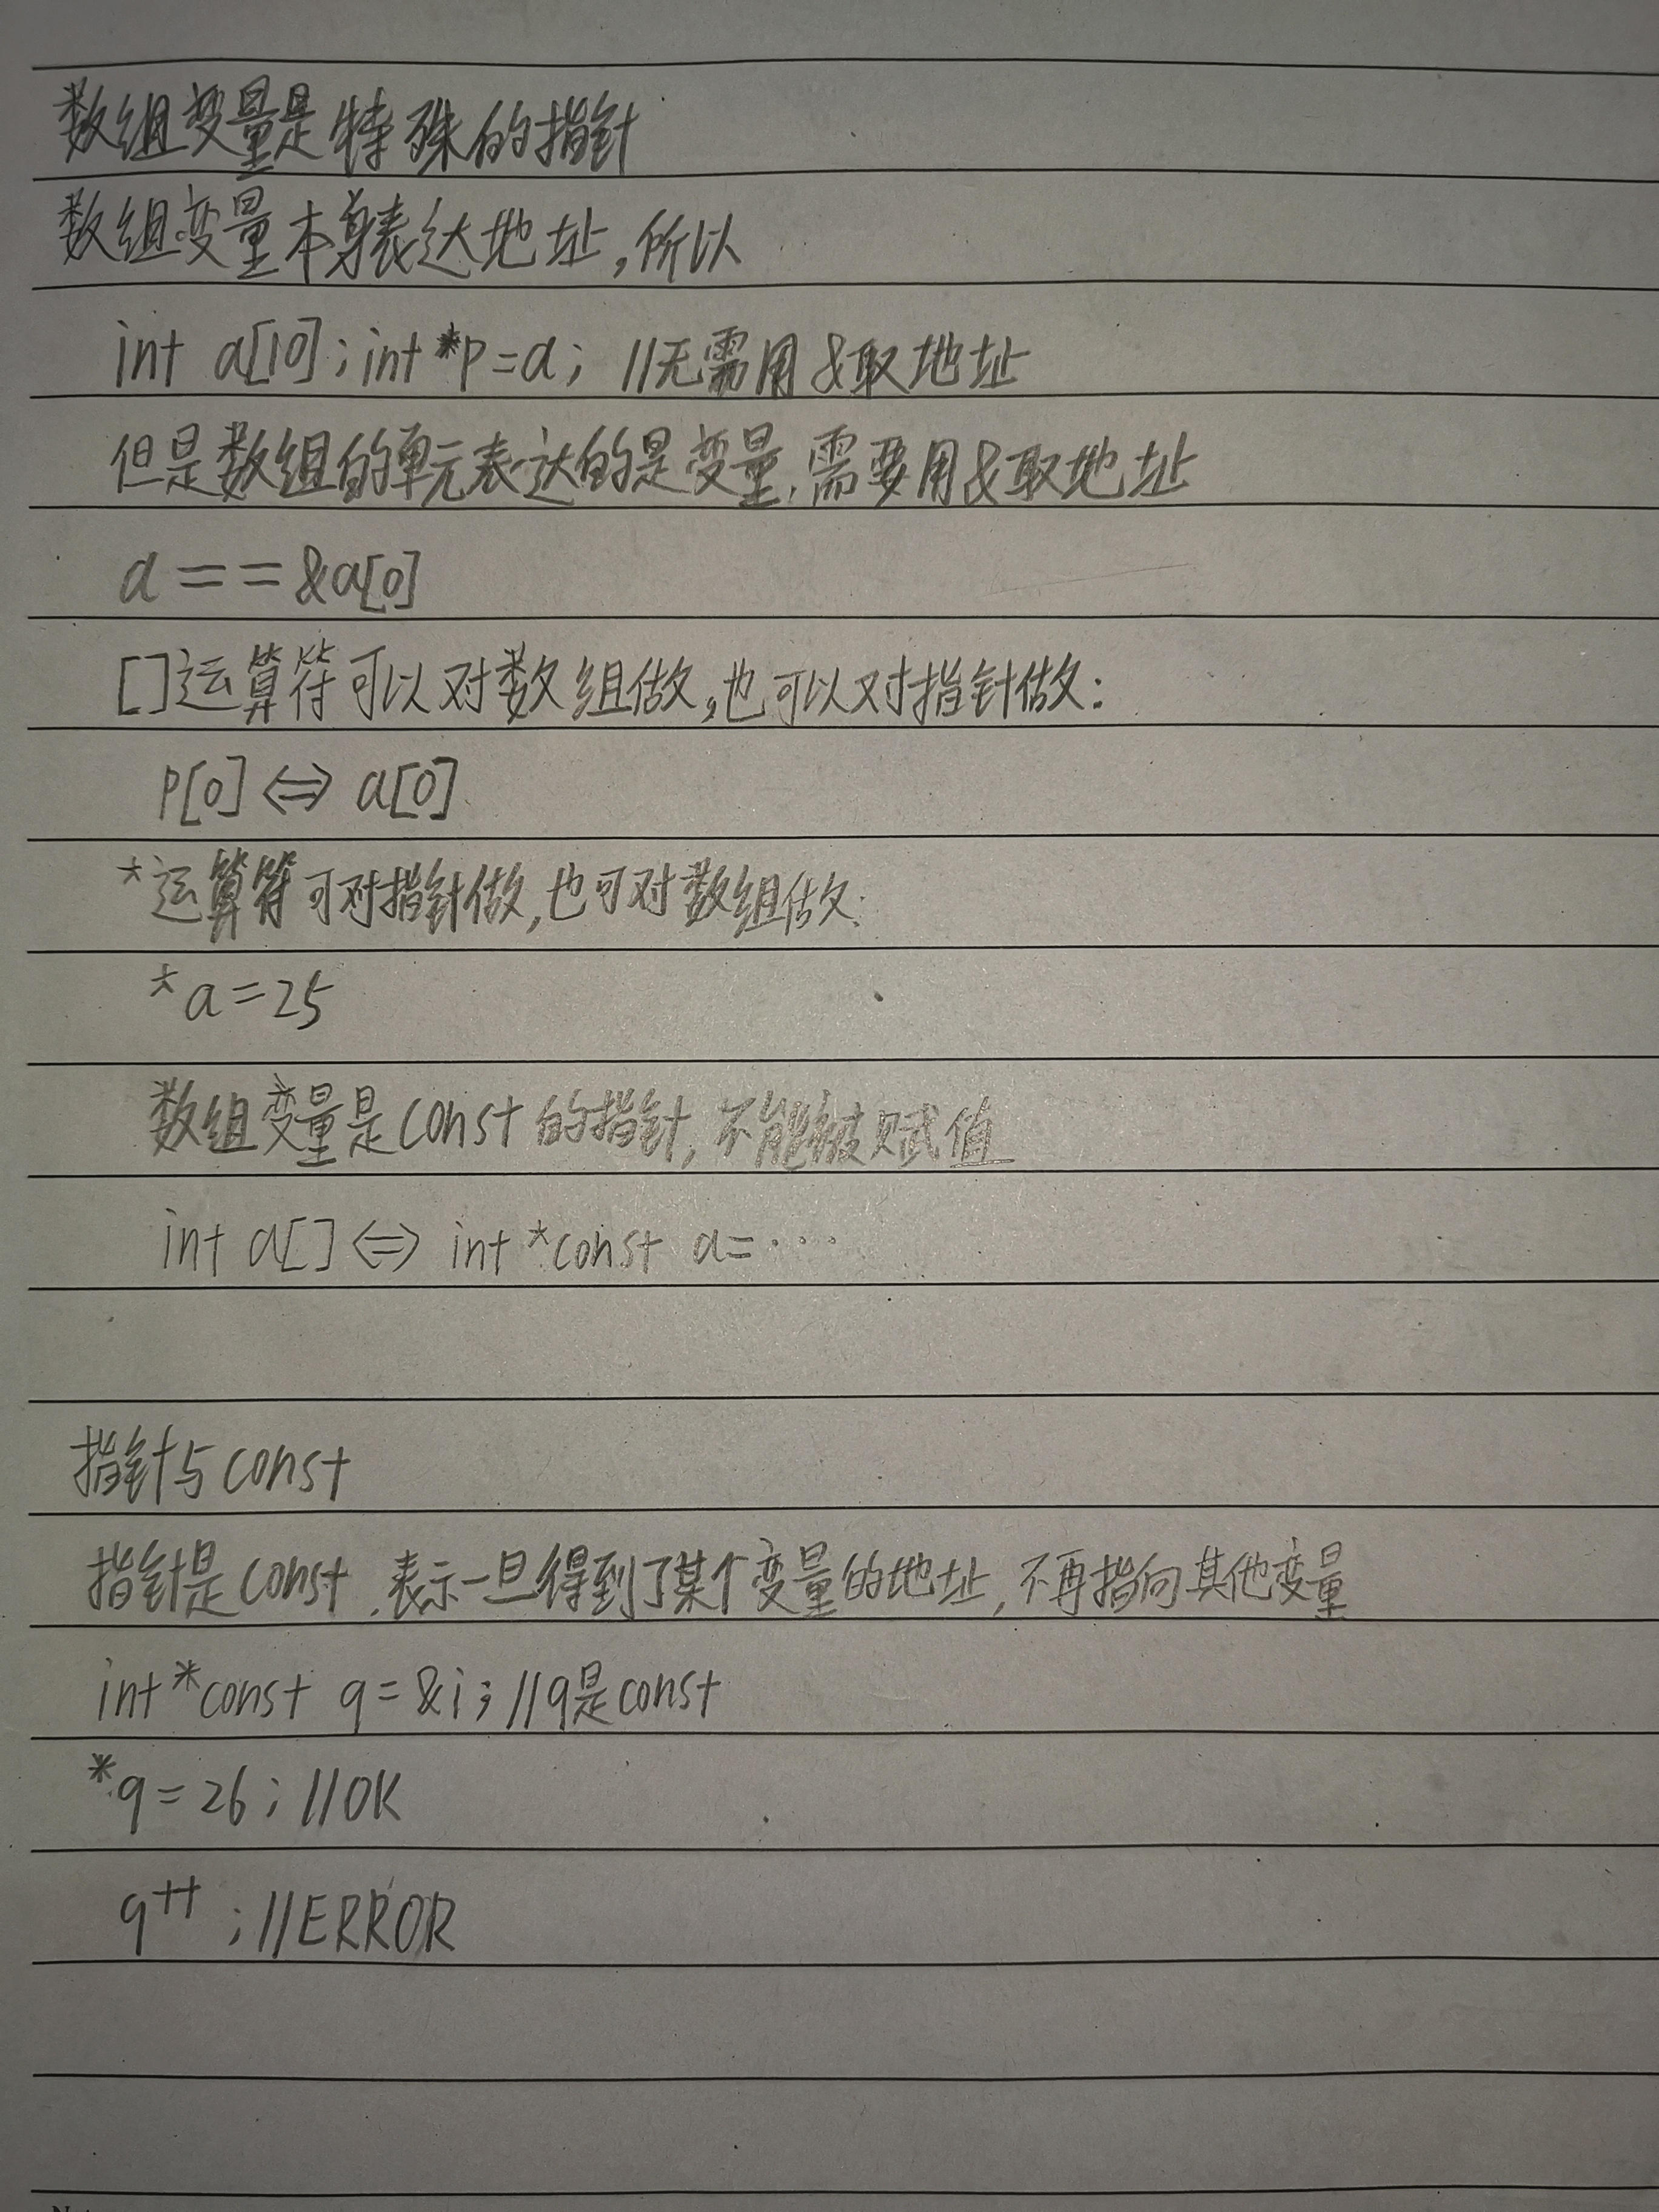 数组变量是特殊的指针
数组变量本身表达地址,所以
int a[10];int *p=a; //无需用&取地址
但是数组的单元表达的是变量,需要用&取地址
a==&a[0]
[]运算符可以对数组做,也可以对指针做:
p[0]<=>a[0]
*运算符可对指针做,也可对数组做:
*a=25
数组变量是const的指针,不能被赋值
int a[]<=>int *const a=···
指针与const
指针是const,表示一旦得到了某个变量的地址,不再指向其他变量
int *const q=&i; //q是const
*q=26; //OK
q++; //ERROR